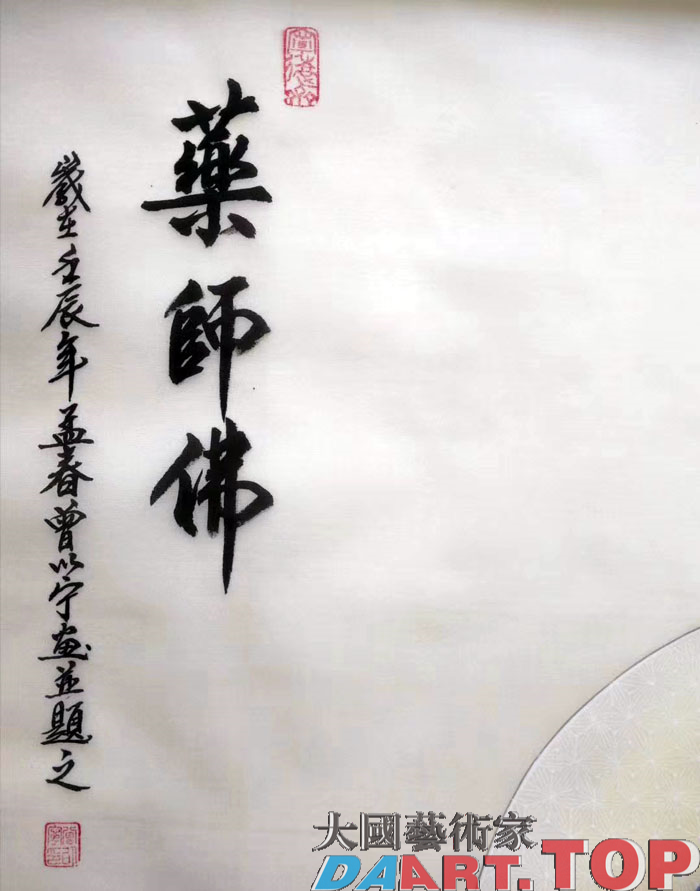 藥師佛
歲在壬辰年孟春曾以宁畫並題之
大國藝術家
DAART.TOP